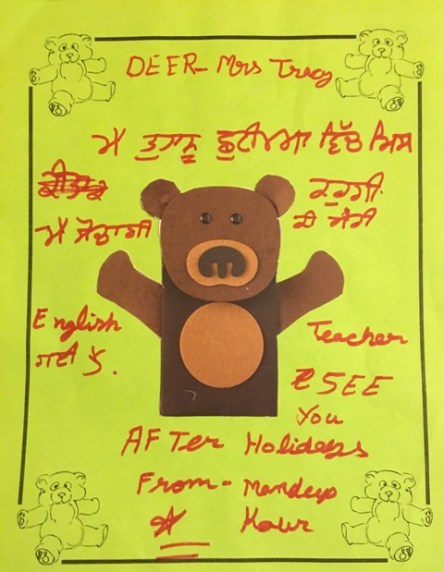 DEER- Mrs Tracy
ਮੈ ਤੁਹਾਨੂ ਛੁਟੀਆਂ ਵਿੱਚ ਮਿਸ
ਕਰੁਗੀ
ਮੈ ਸੋਚਾਗੀ ਕੀ ਮੇਰੀ
English Teacher
ਨਹੀ ਹੈ.
SEE
You
AFTer Holideys
From- Mandeep
Kaur